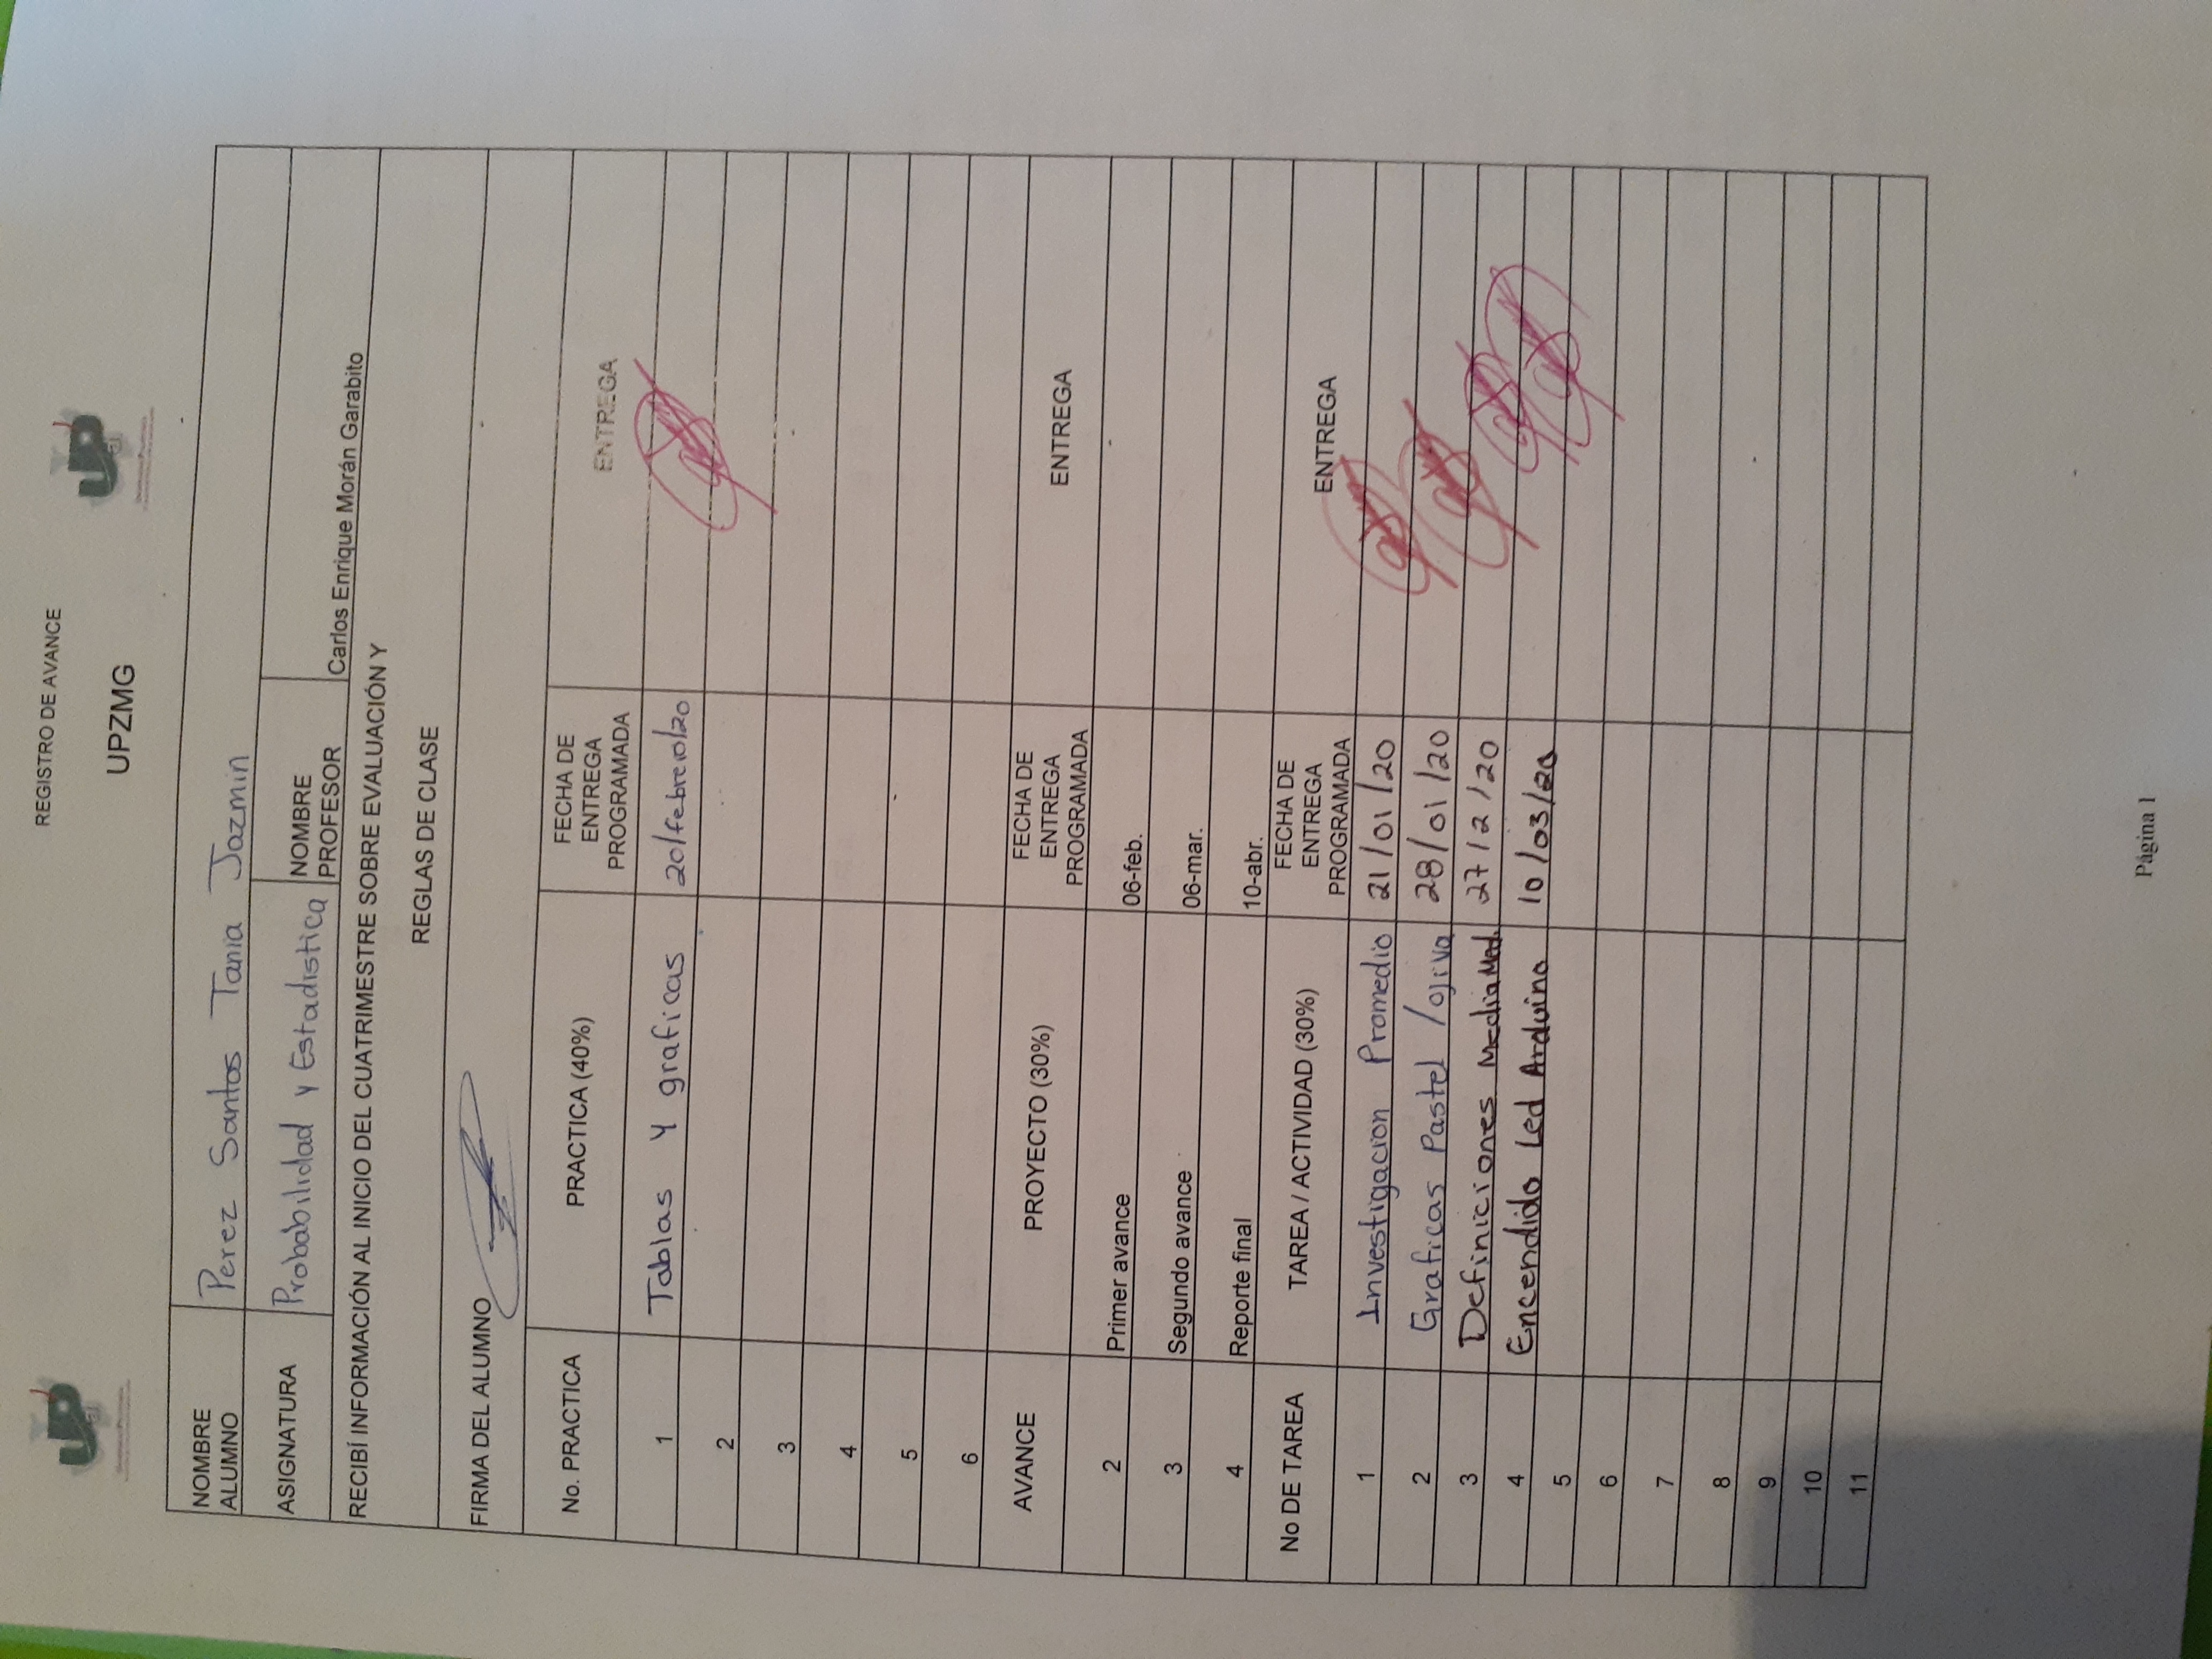 REGISTRO DE AVANCE
UPZMG
NOMBRE ALUMNO Perez Santos Tania Jazmin
ASIGNATURA Probabilidad y Estadistica NOMBRE PROFESOR Carlos Enrique Morán Garabito
RECIBÍ INFORMACIÓN AL INICIO DEL CUATRIMESTRE SOBRE EVALUACIÓN Y
REGLAS DE CLASE
FIRMA DEL ALUMNO
No. PRACTICA PRACTICA (40%) FECHA DE ENTREGA PROGRAMADA ENTREGA
1 Tablas y graficas 20/febrero/20
2
3
4
5
6
AVANCE PROYECTO (30%) FECHA DE ENTREGA PROGRAMADA ENTREGA
2 Primer avance 06-feb.
3 Segundo avance 06-mar.
4 Reporte final 10-abr.
No DE TAREA TAREA / ACTIVIDAD (30%) FECHA DE ENTREGA PROGRAMADA ENTREGA
1 Investigacion Promedio 21/01/20
2 Graficas Pastel / ojiva 28/01/20
3 Definiciones Media Med. 27/2/20
4 Encendido Led Arduino 10/03/20
5
6
7
8
9
10
11
Página 1